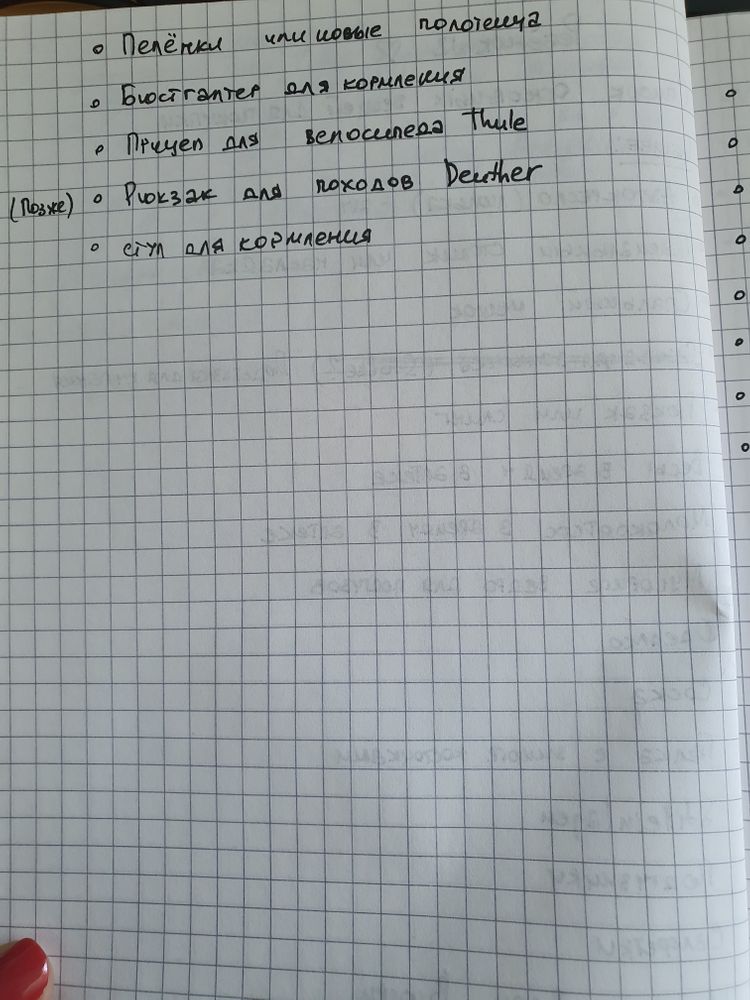 Пелёнки или новые полотенца
Бюстгалтер для кормления
Прицеп для велосипеда Thule
(Позже) Рюкзак для походов Deuther
стул для кормления